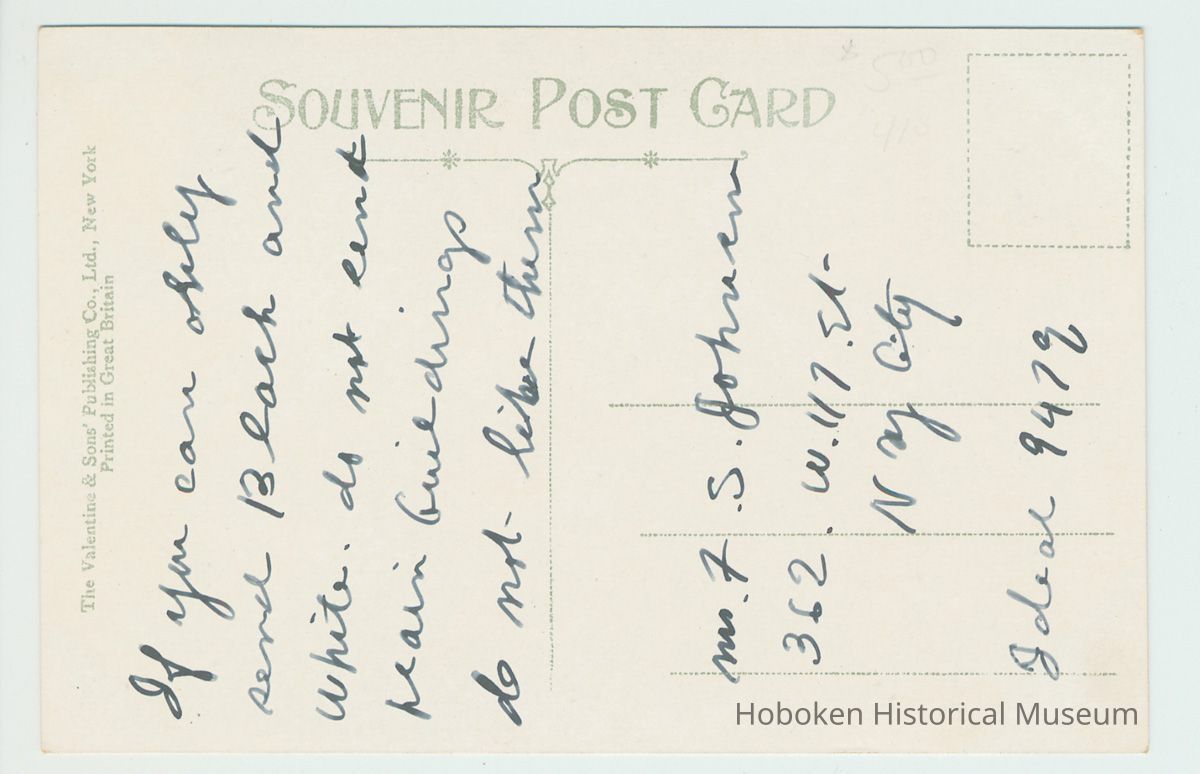 SOUVENIR POST CARD
The Valentine & Sons' Publishing Co., Ltd., New York
Printed in Great Britain
If you can only
send Black and
white. do not send
plain buildings
do not like them
Mr. F. S. Johnsen
362. W. 117. St.
N y City
Ideal 9479
5.00
Hoboken Historical Museum